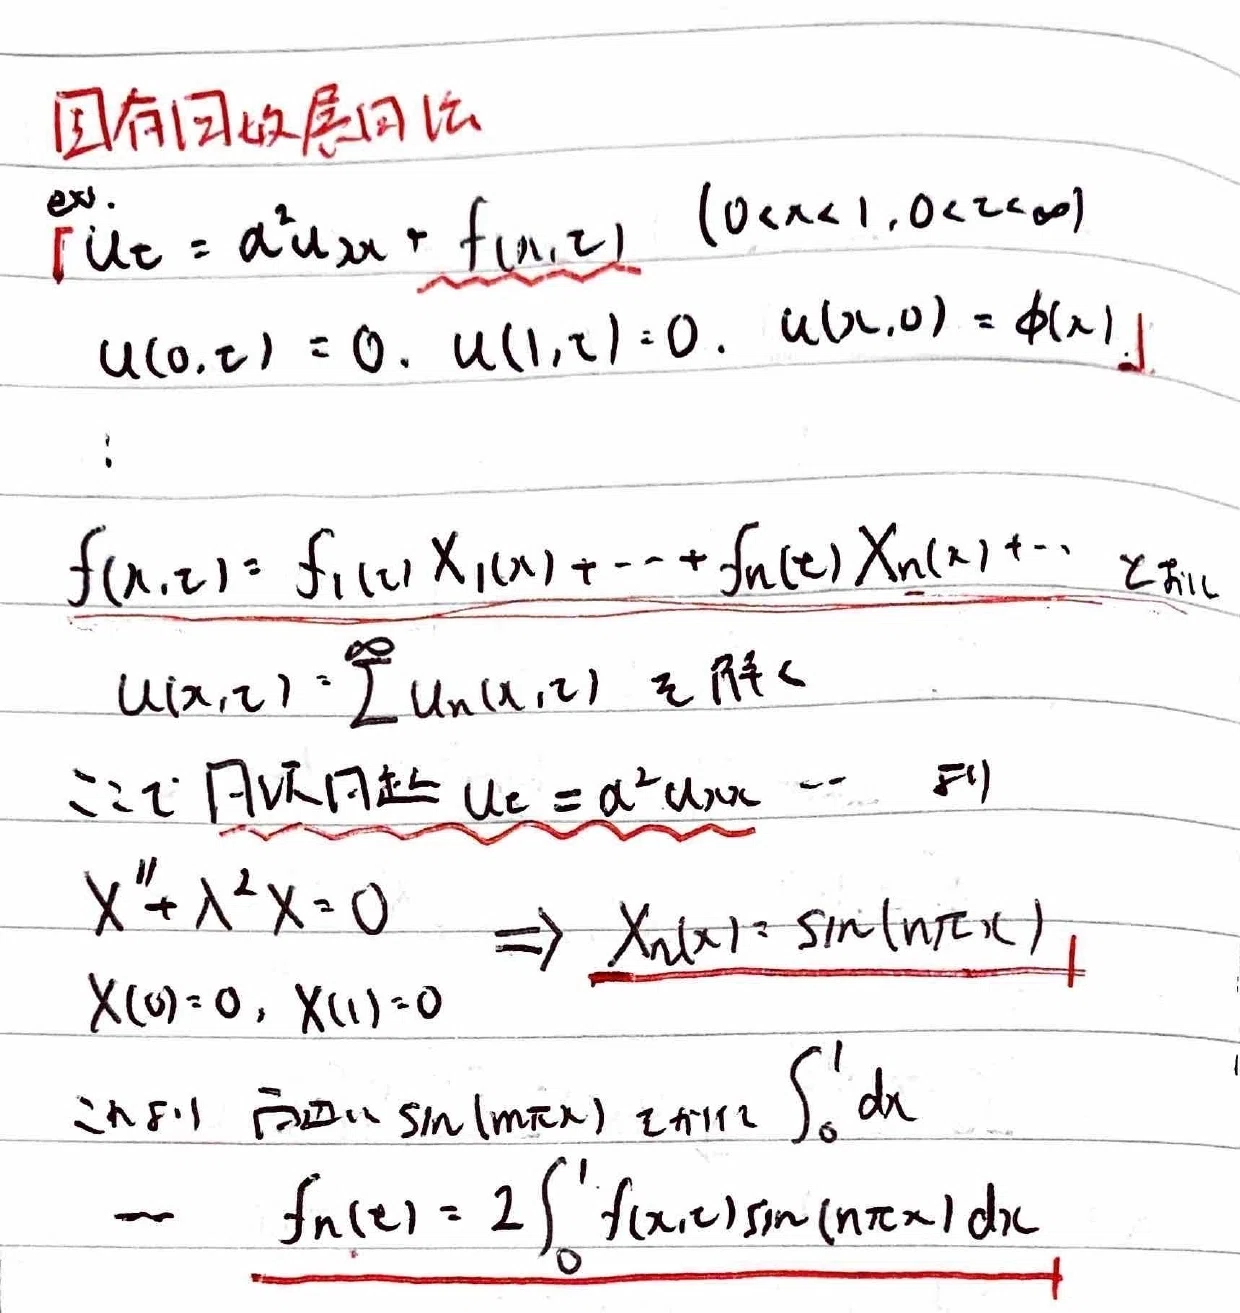 固有関数展開法
ex.
「u_t = α²u_xx + f(x,t) (0<x<1, 0<t<∞)
u(0,t) = 0, u(1,t) = 0, u(x,0) = φ(x)」
⋮
f(x,t) = f₁(t)X₁(x) + ··· + f_n(t)X_n(x) + ··· とおいて
u(x,t) = ∞∑ u_n(x,t) を解く
ここで 同次問題 u_t = α²u_xx ·· より
X'' + λ²X = 0
X(0) = 0, X(1) = 0
⇒ X_n(x) = sin(nπx)
これより 両辺に sin(mπx) をかけて ∫₀¹ dx
〜 f_n(t) = 2∫₀¹ f(x,t) sin(nπx) dx